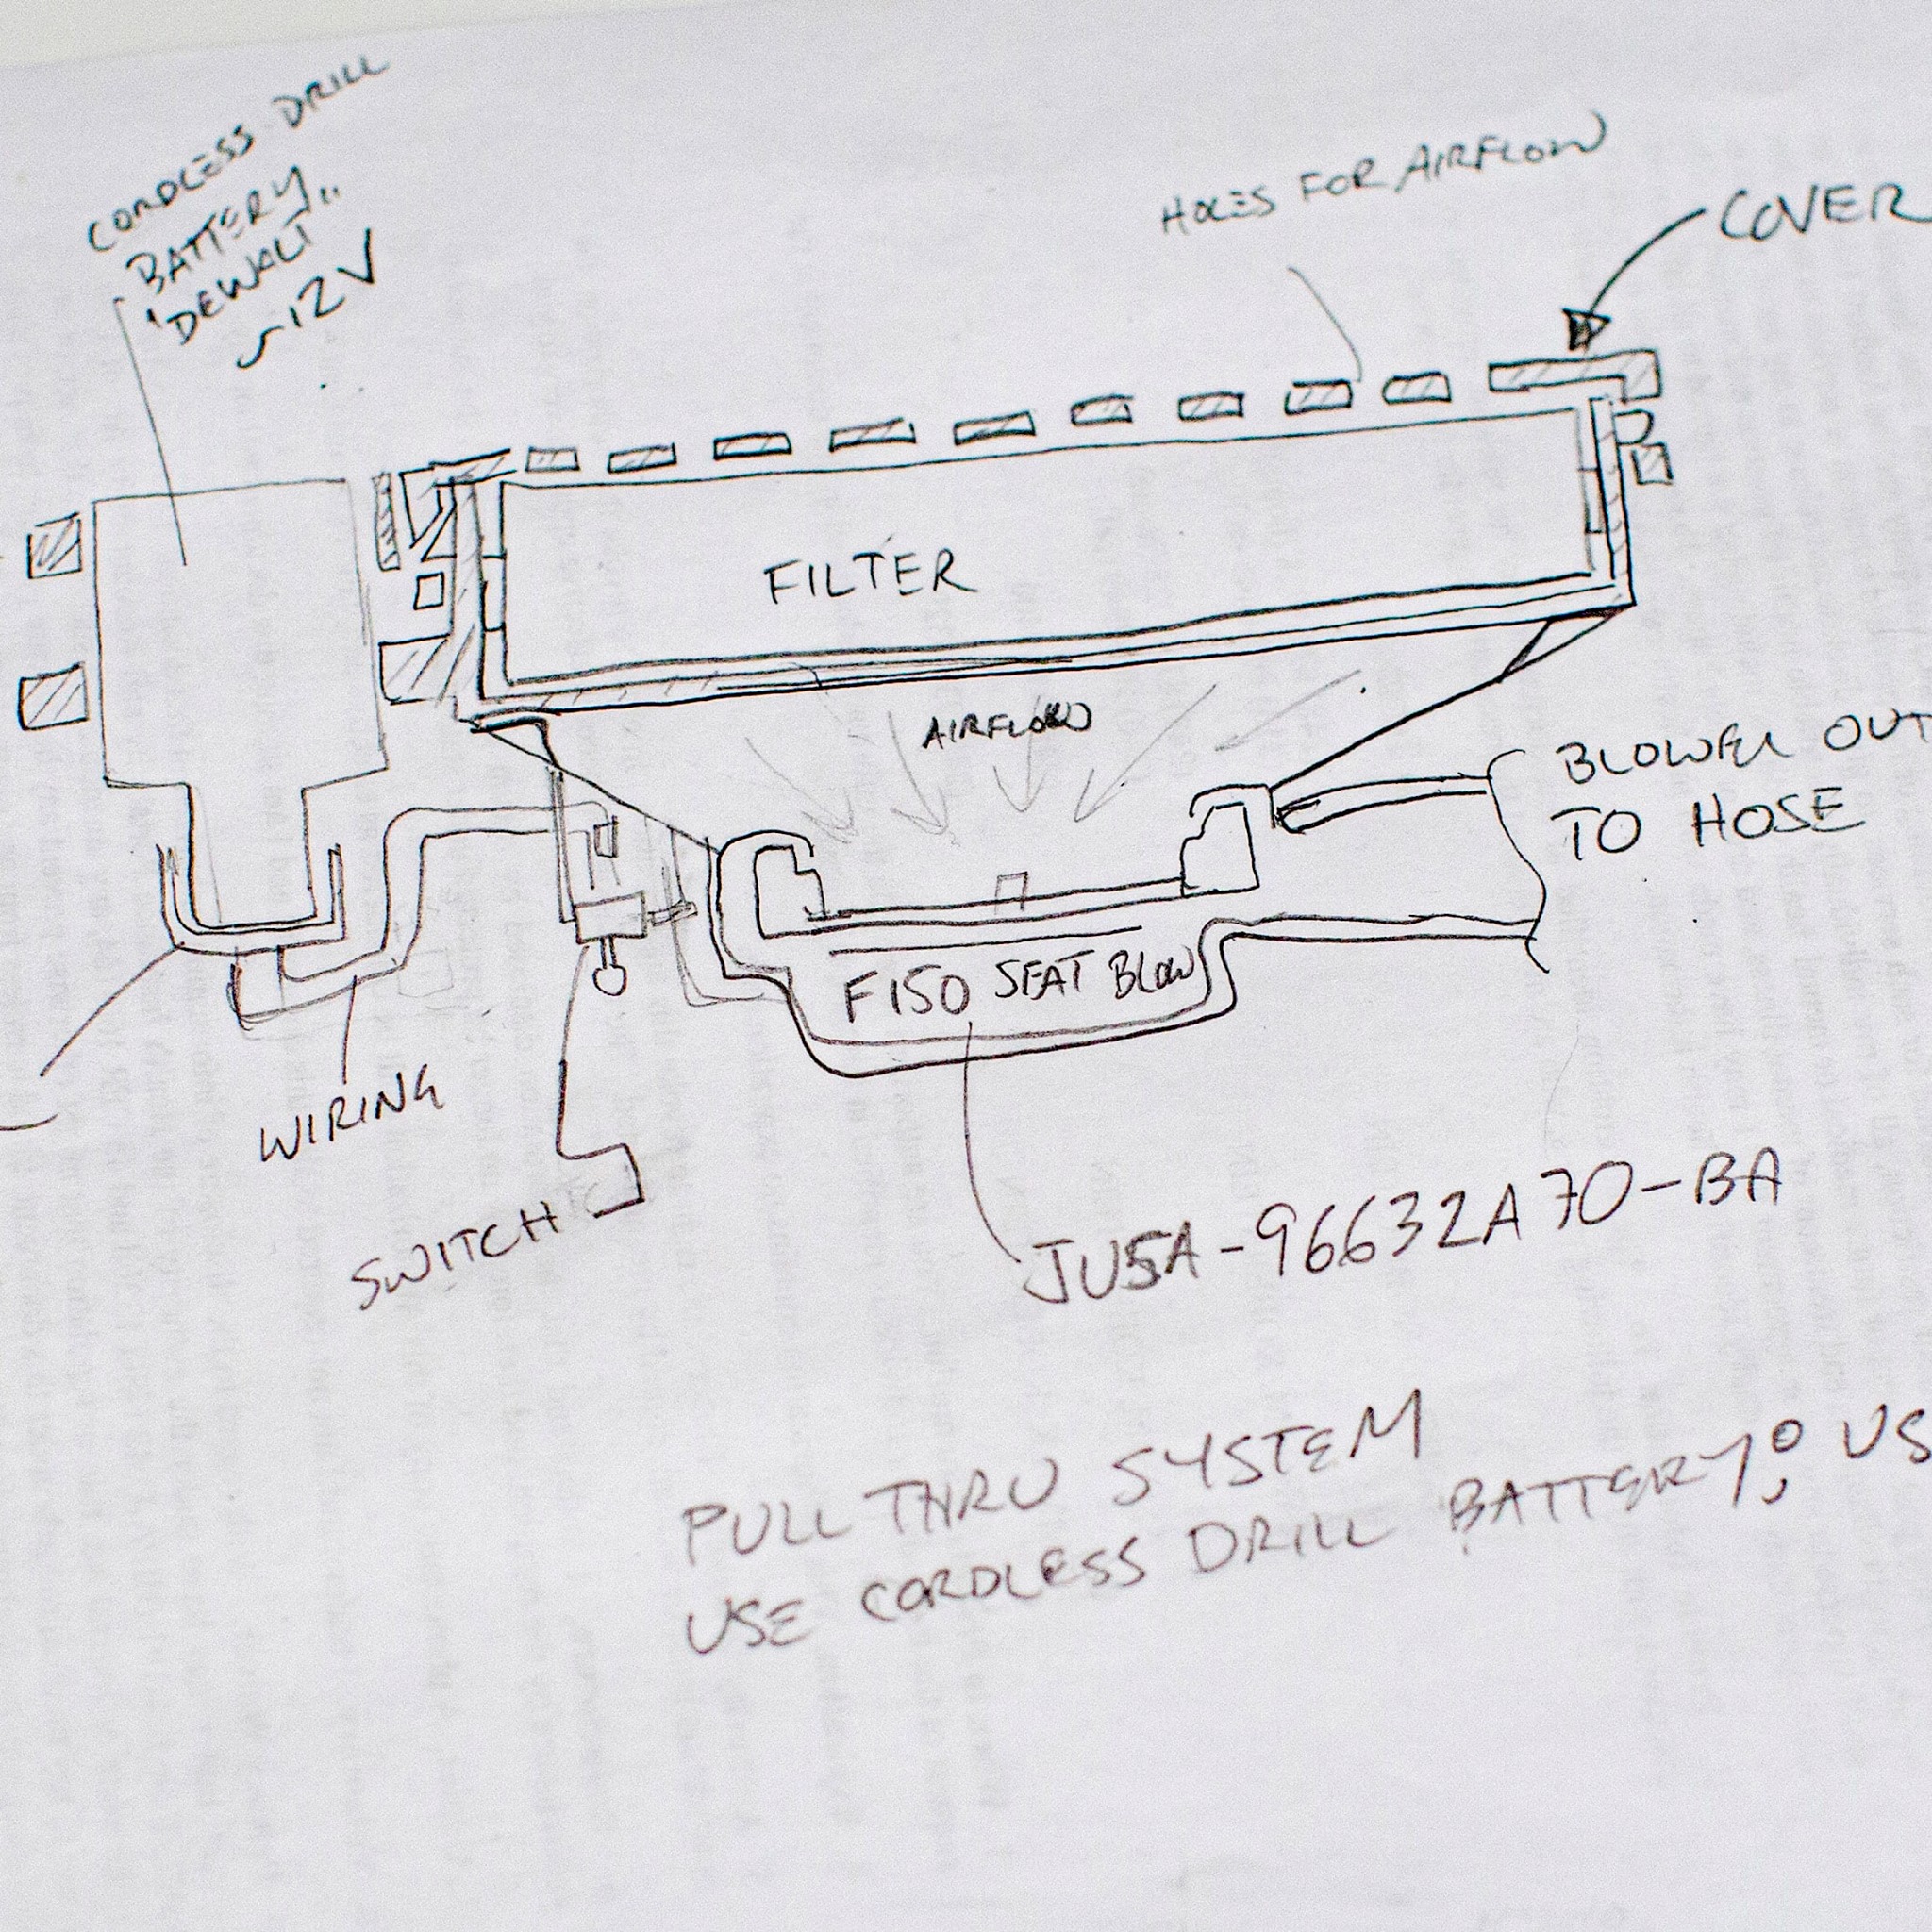 CORDLESS DRILL
BATTERY
"DEWALT"
~12V
HOLES FOR AIRFLOW
COVER
FILTER
AIRFLOW
BLOWER OUT
TO HOSE
F150 SEAT BLOW
WIRING
SWITCH
JU5A-96632A70-BA
PULL THRU SYSTEM
USE CORDLESS DRILL BATTERY; US